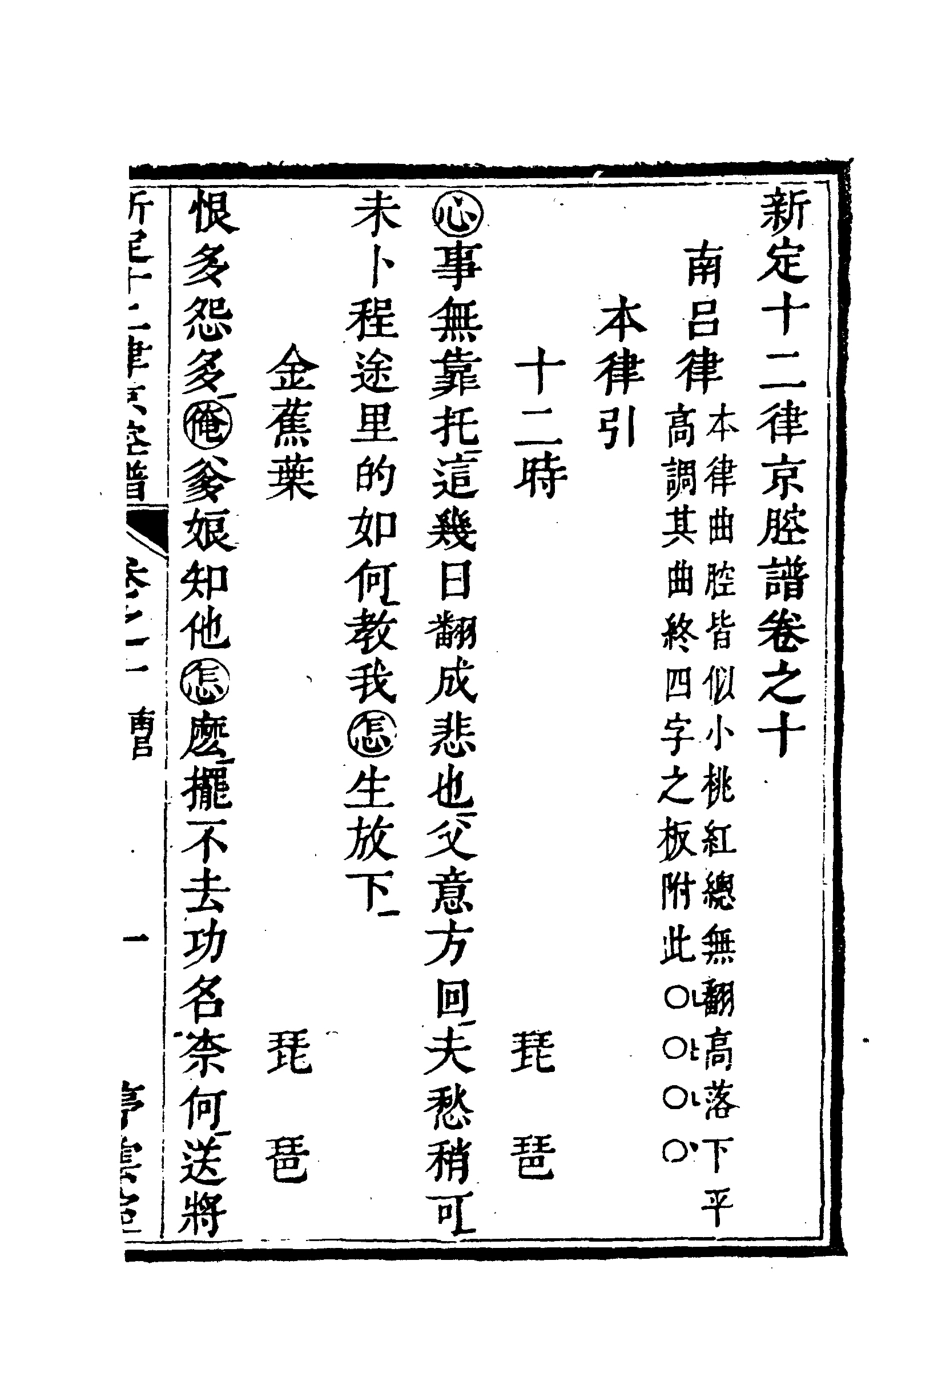 新定十二律京腔譜卷之十
南呂律
本律曲腔皆似小桃紅總無翻高落下平
高調其曲終四字之板附此○○○○
本律引
十二時 琵琶
心事無靠托這幾日翻成悲也父意方回夫愁稍可
未卜程途里的如何教我怎生放下
金蕉葉 琵琶
恨多怨多俺爹娘知他怎麽擺不去功名柰何送將
新定十二律京腔譜 卷之十 南呂 一